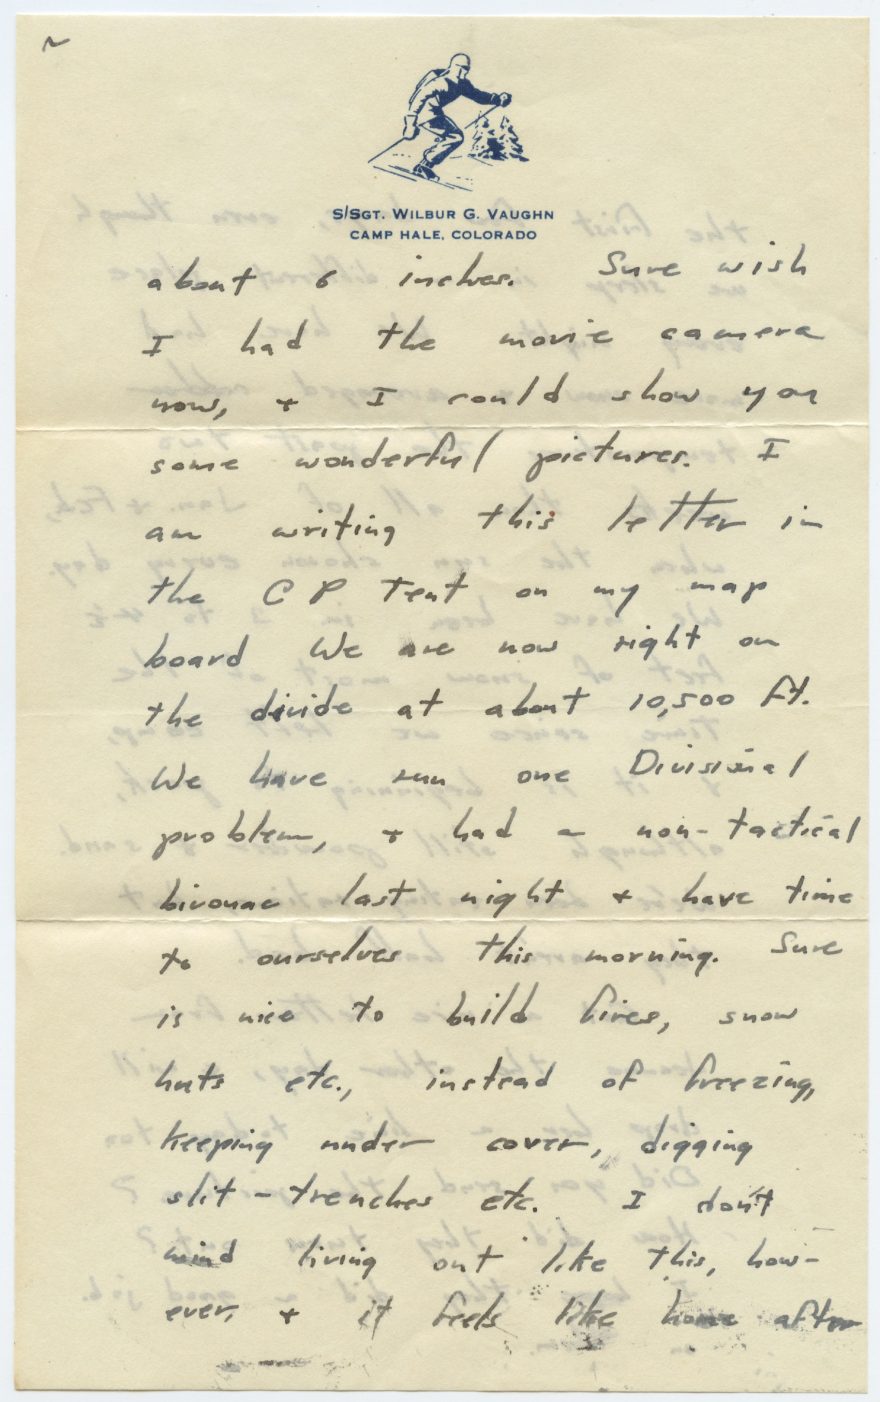 S/SGT. WILBUR G. VAUGHN
CAMP HALE, COLORADO
about 6 inches. Sure wish
I had the movie camera
now, + I could show you
some wonderful pictures. I
am writing this letter in
the C P Tent on my map
board We are now right on
the divide at about 10,500 ft.
We have run one Divisional
problem, + had a non-tactical
bivouac last night + have time
to ourselves this morning. Sure
is nice to build fires, snow
huts etc., instead of freezing,
keeping under cover, digging
slit-trenches etc. I don't
mind living out like this, how-
ever, + it feels like home after